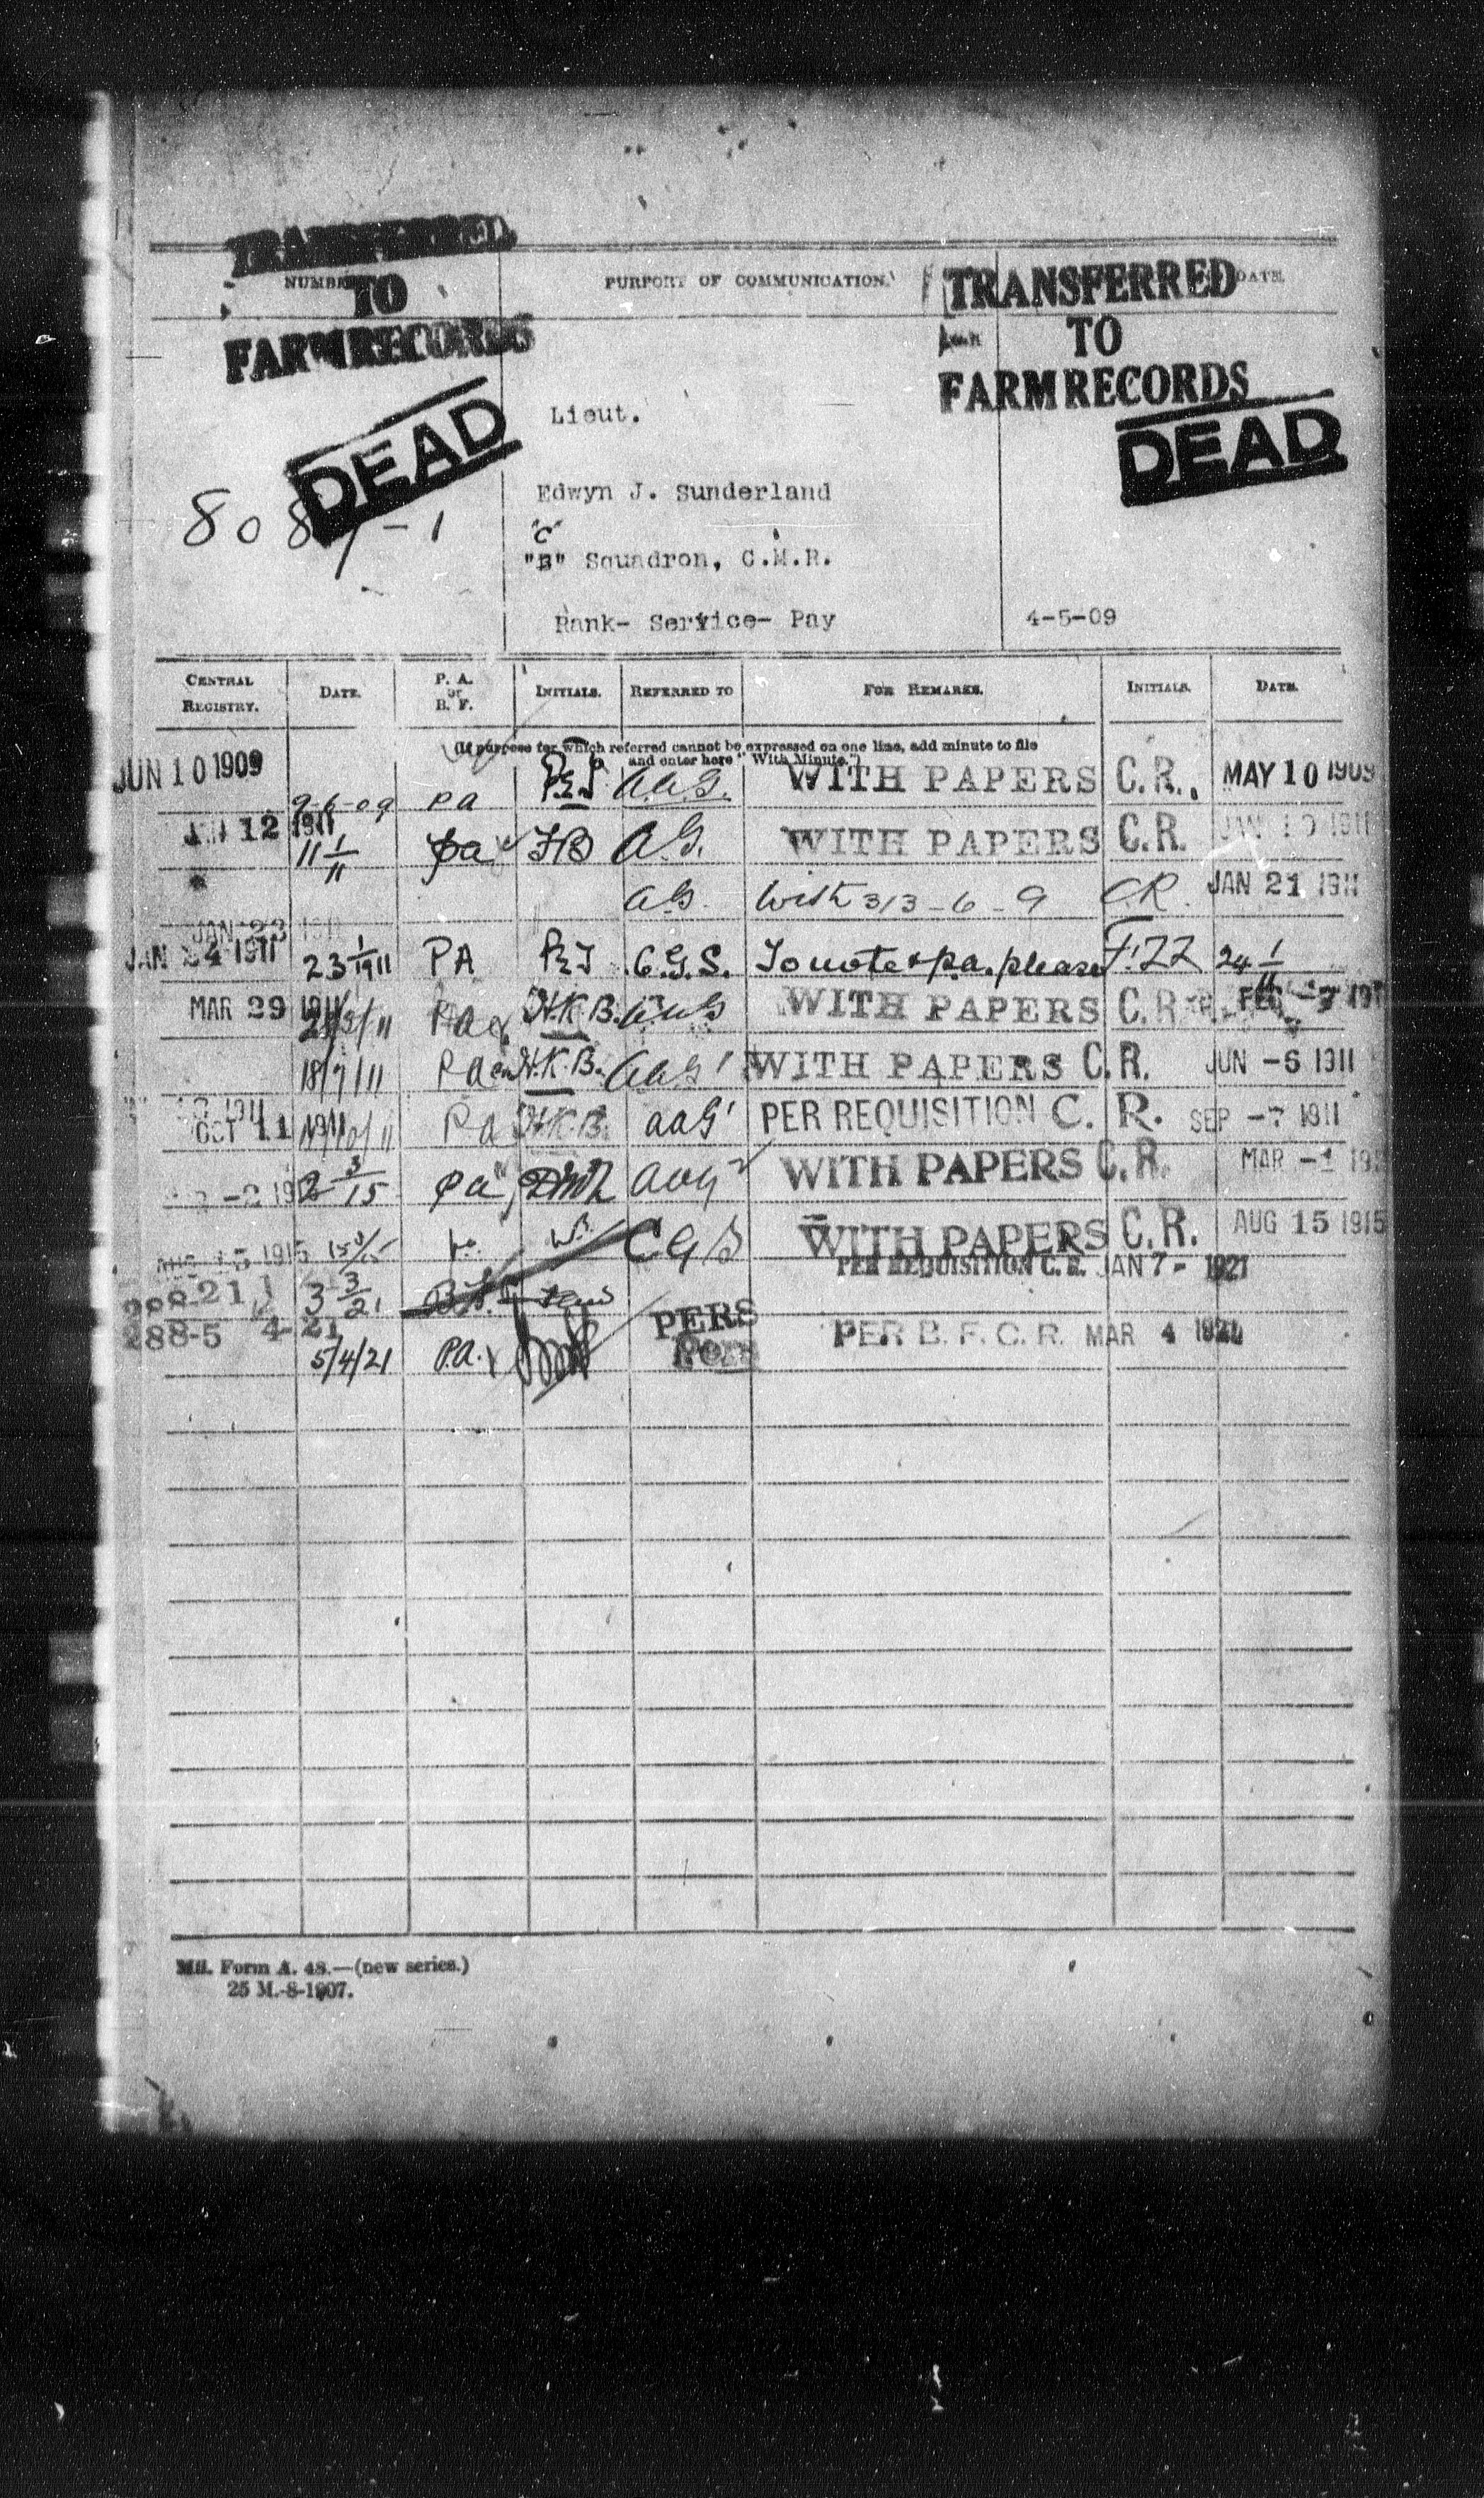 TRANSFERRED
TO
FARM RECORDS
NUMBER PURPORT OF COMMUNICATION. DATE.
TRANSFERRED
TO
FARM RECORDS
DEAD
DEAD
Lieut.
Edwyn J. Sunderland
"C"
"B" Squadron, C.M.R.
Rank- Service- Pay 4-5-09
CENTRAL REGISTRY. DATE. P. A. or B. F. INITIALS. REFERRED TO FOR REMARKS. INITIALS. DATE.
(If purpose for which referred cannot be expressed on one line, add minute to file
and enter here "With Minute.")
JUN 10 1909 9-6-09 PA A.A.G. WITH PAPERS C.R. MAY 10 1909
12 1911 11 1/11 pa A.G. WITH PAPERS C.R. JAN 10 1911
A.G. With 313-6-9 C.R. JAN 21 1911
JAN 23
JAN 24 1911 23 1/1911 PA C.G.S. To note & p.a. please 24 1/11
MAR 29 1911 PA H.K.B. WITH PAPERS C.R. FEB -3 1911
18/7/11 PA H.K.B. AAG WITH PAPERS C.R. JUN -6 1911
OCT 11 1911 PA H.K.B. AAG PER REQUISITION C. R. SEP -7 1911
2 3/15 pa WITH PAPERS C.R. MAR -1
1915 CGS WITH PAPERS C.R. AUG 15 1915
PER REQUISITION C.R. JAN 7- 1921
3 3/21 B.F.
288-5 4-21 PERS PER B. F. C. R. MAR 4 1921
5/4/21 P.A.
Mil. Form A. 48.—(new series.)
25 M.-8-1907.